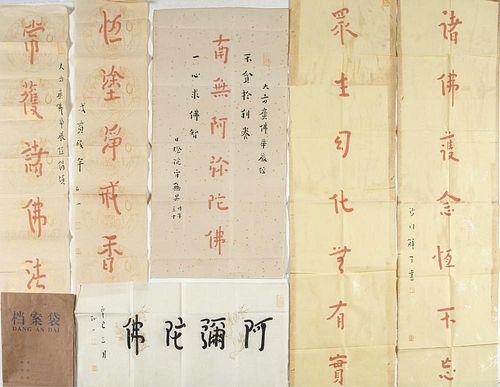 諸佛護念恆不忘
眾生幻化無有實
大方廣佛華嚴經
不貪於利養
南無阿弥陀佛
一心求佛智
恆塗淨戒香
常獲諸佛法
大方廣佛華嚴經
阿彌陀佛
档案袋
DANG AN DAI